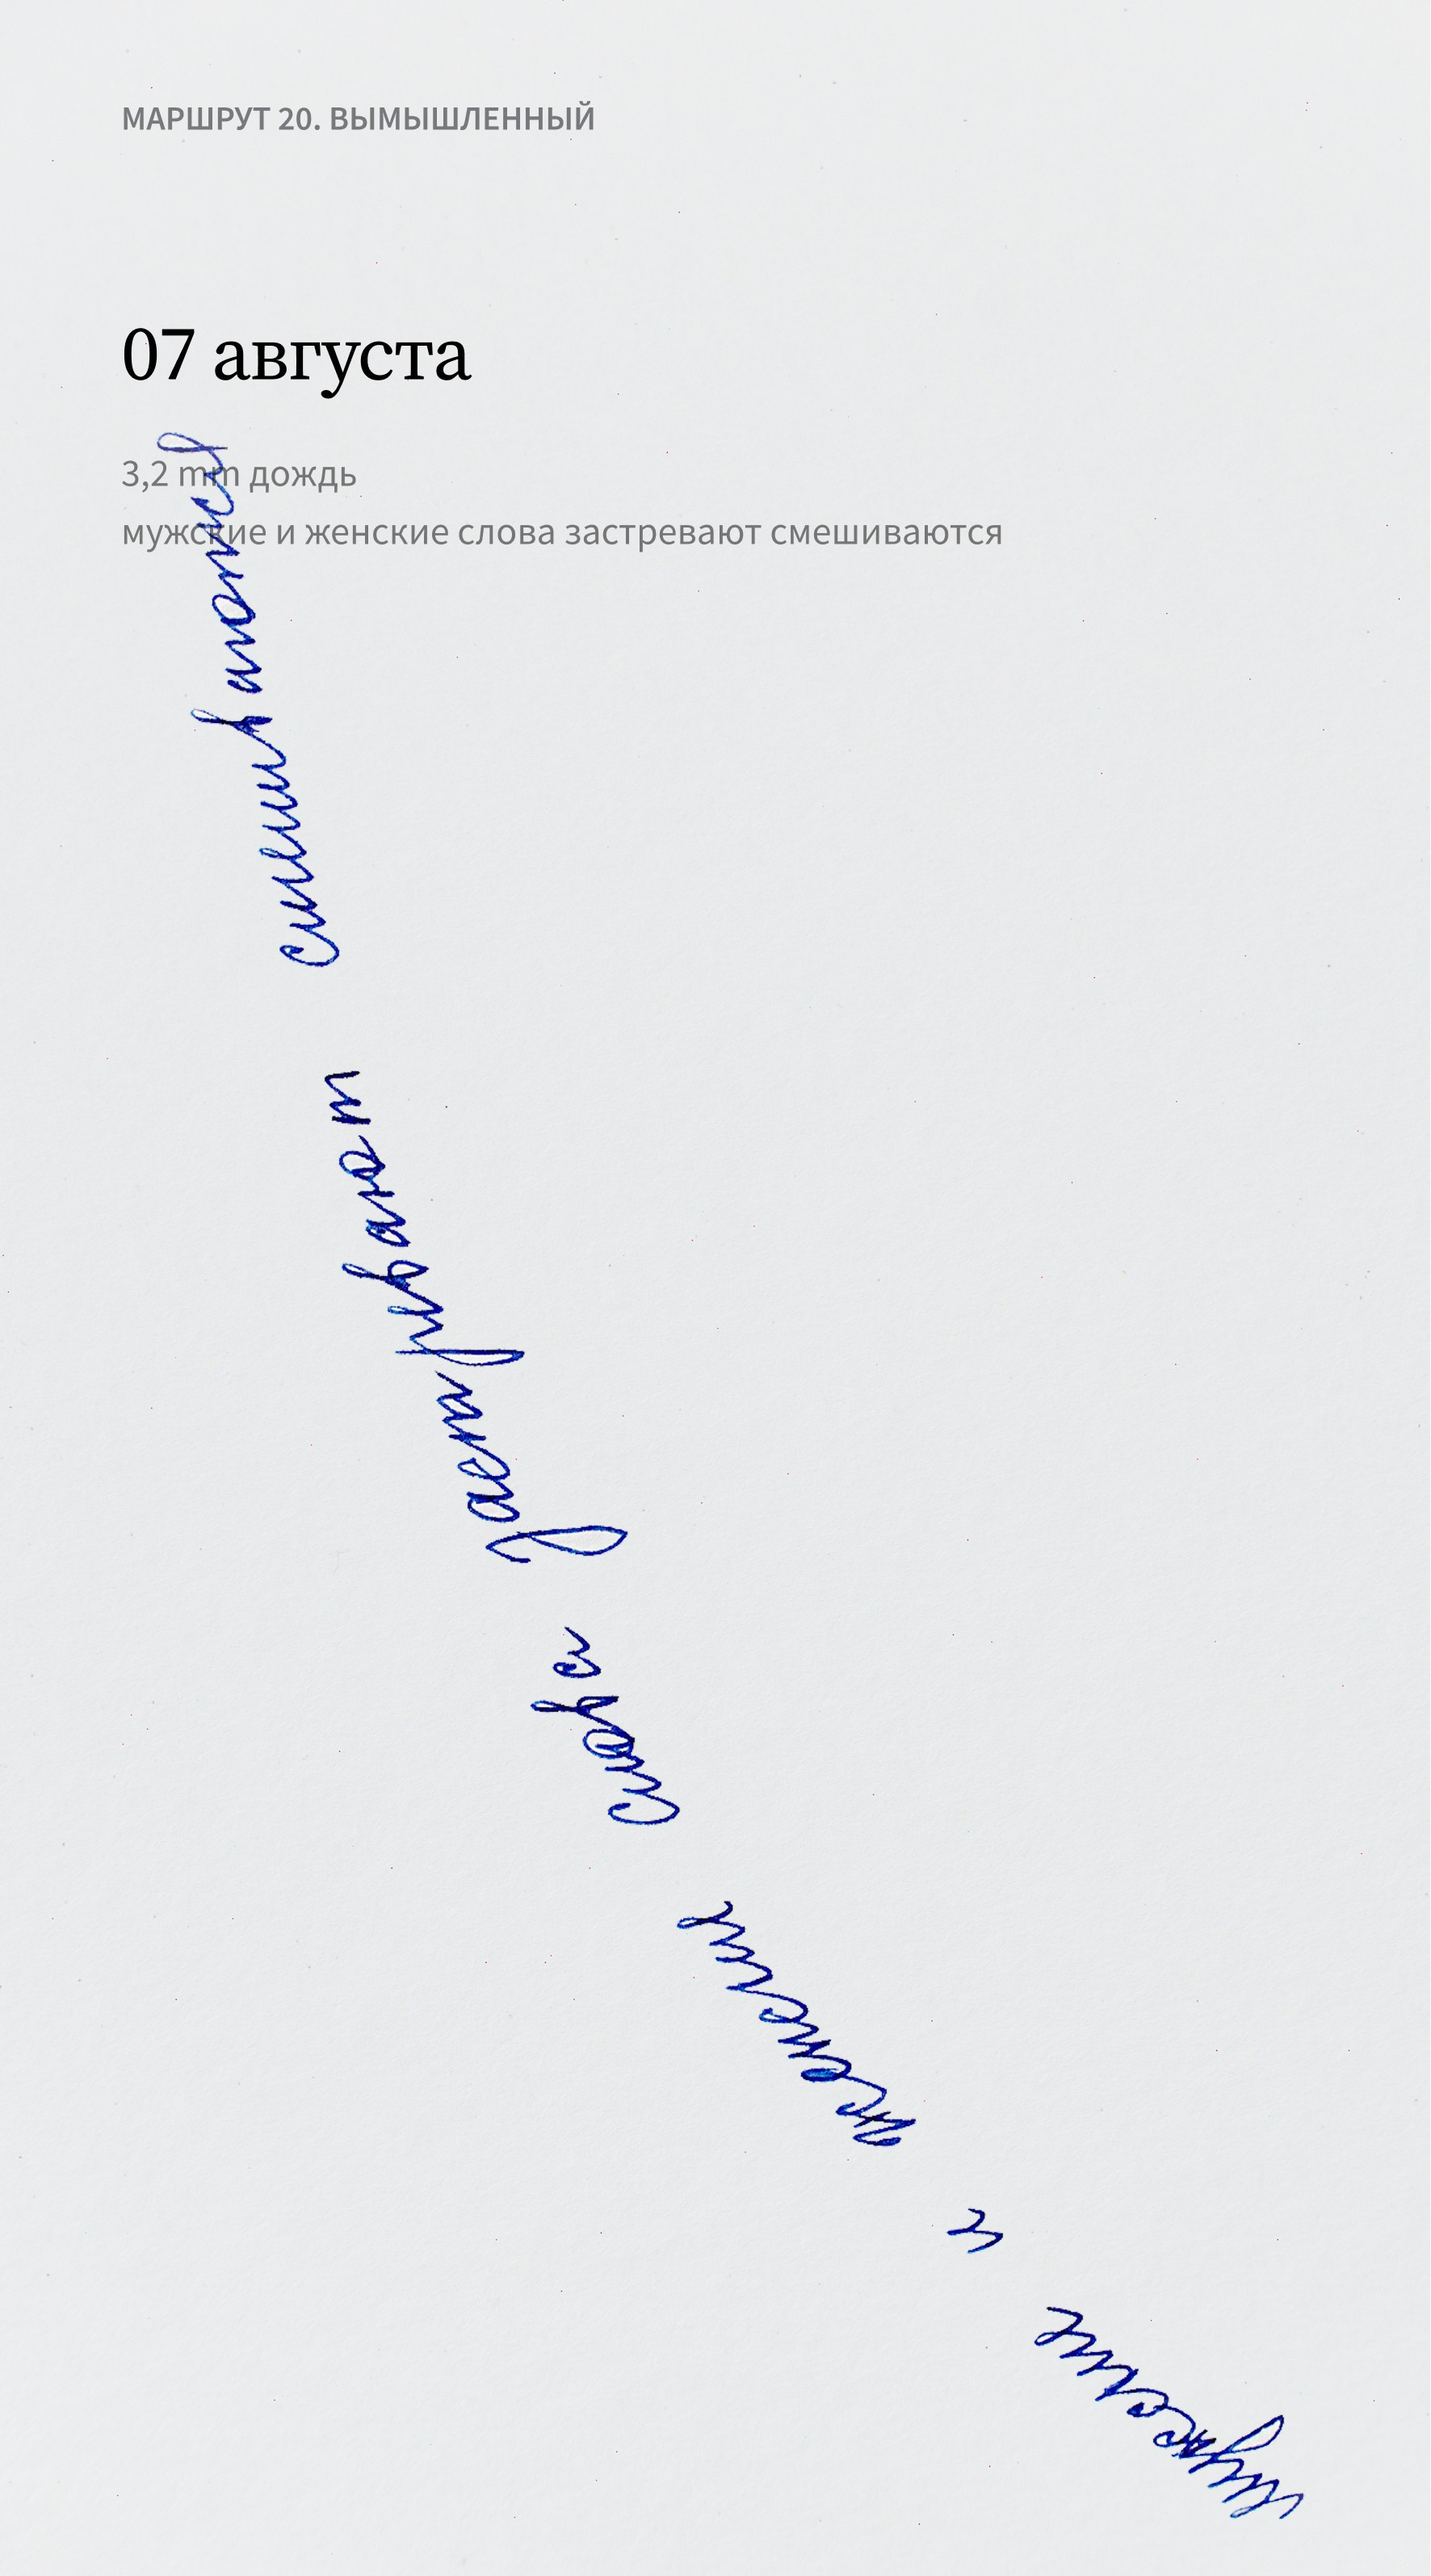 МАРШРУТ 20. ВЫМЫШЛЕННЫЙ
07 августа
3,2 mm дождь
мужские и женские слова застревают смешиваются
мужские и женские слова застревают смешиваются